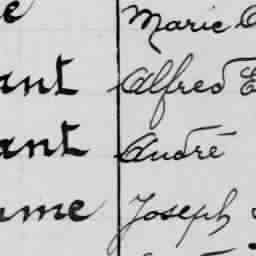 e Marie
ant Alfred E
ant André
ume Joseph